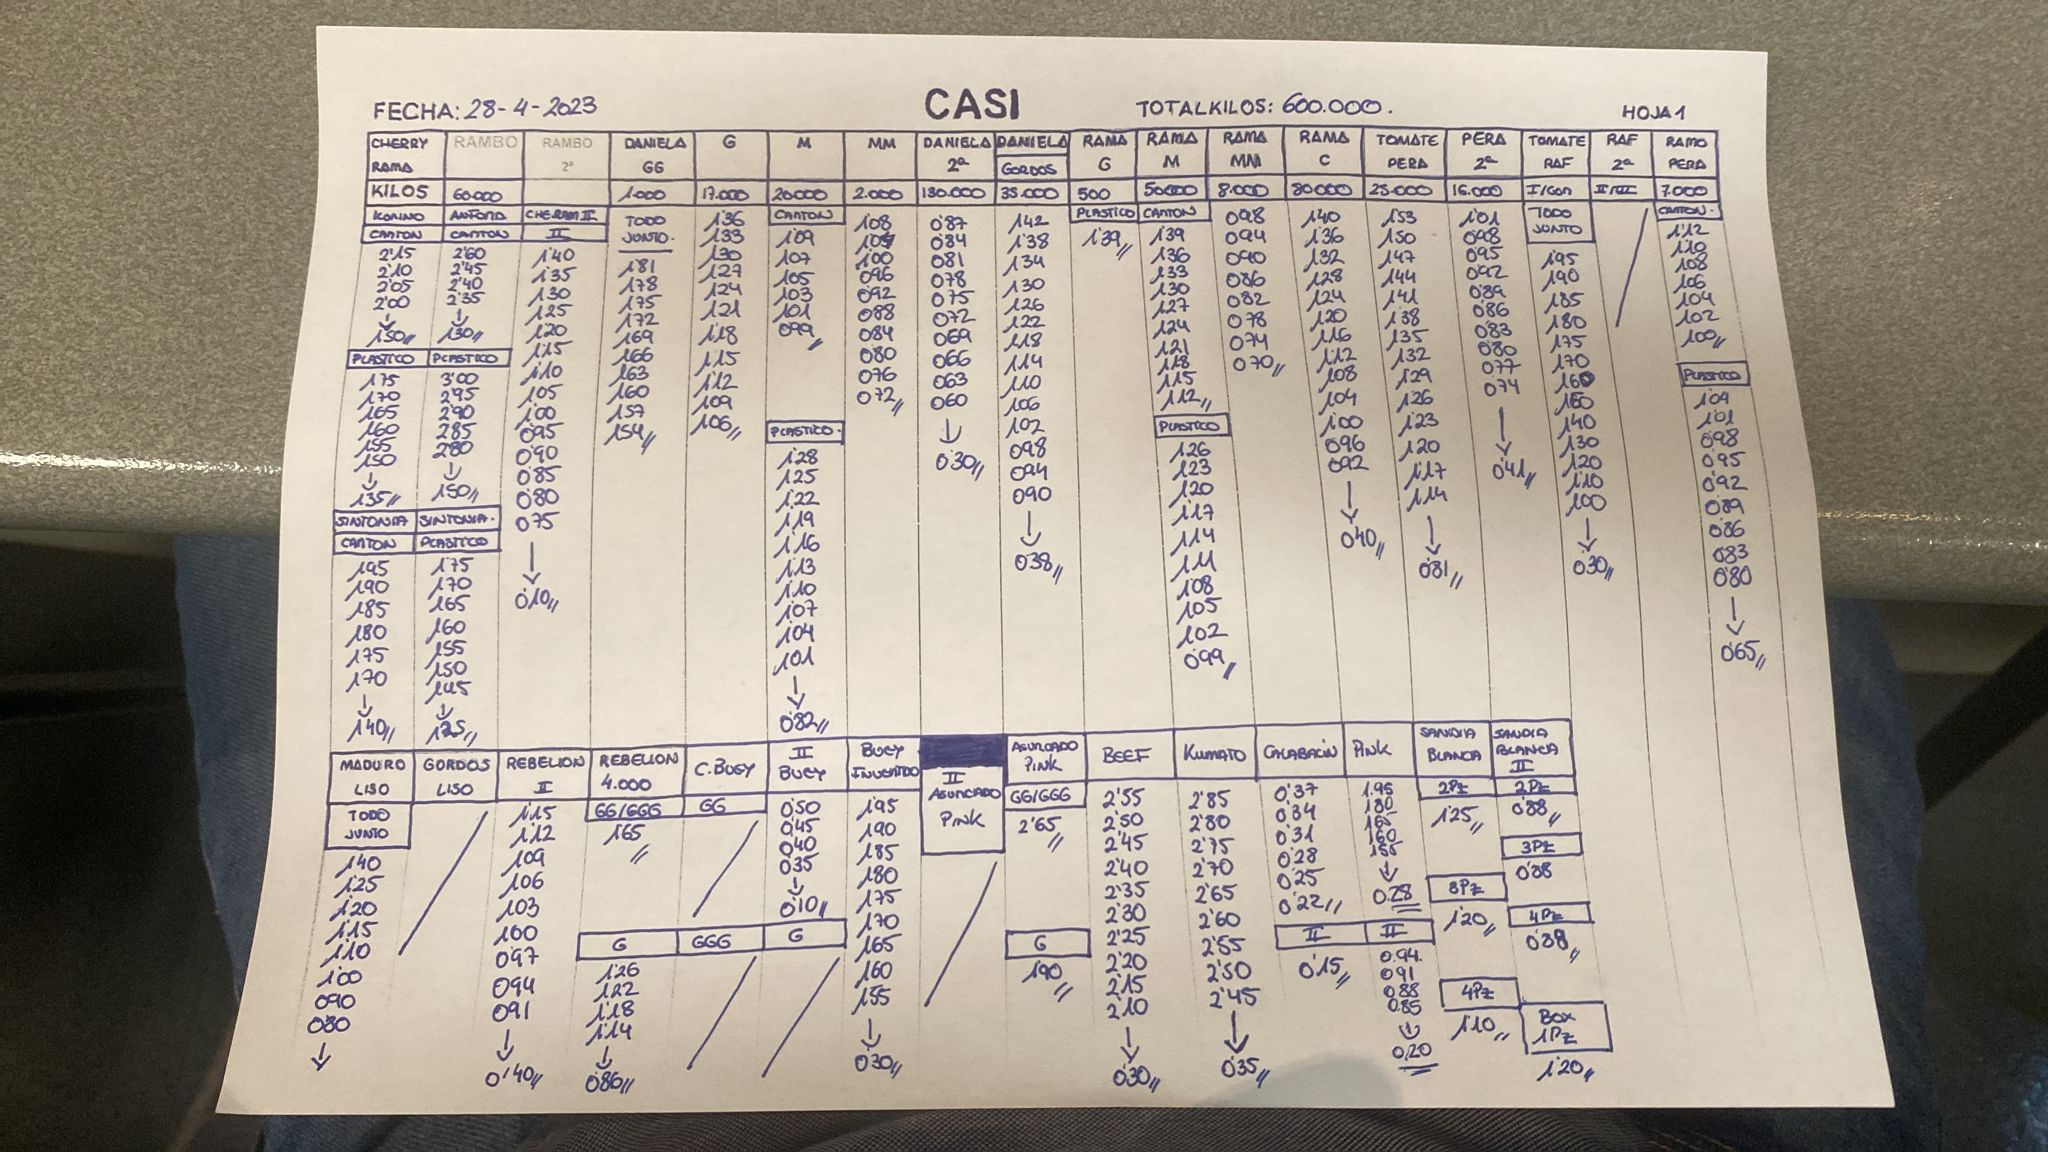 FECHA: 28-4-2023 CASI TOTAL KILOS: 600.000. HOJA 1
CHERRY RAMA RAMBO RAMBO 2ª DANIELA GG G M MM DANIELA 2ª DANIELA GORDOS RAMA G RAMA M RAMA MM RAMA C TOMATE PERA PERA 2ª TOMATE RAF RAF 2ª RAMO PERA
KILOS 60.000 1.000 17.000 20.000 2.000 130.000 35.000 500 50.000 8.000 80.000 25.000 16.000 I/GOR II/III 7.000
CARTON
2'15
2'10
2'05
2'00
↓
1'50//
PLASTICO
1'75
1'70
1'65
1'60
1'55
1'50
↓
1'35//
SINTONIA
CARTON
1'95
1'90
1'85
1'80
1'75
1'70
↓
1'40//
CARTON
2'60
2'45
2'40
2'35
↓
1'30//
PLASTICO
3'00
2'95
2'90
2'85
2'80
↓
1'50//
SINTONIA.
PLASTICO
1'75
1'70
1'65
1'60
1'55
1'50
1'45
↓
1'25//
CHERAM II
II
1'40
1'35
1'30
1'25
1'20
1'15
1'10
1'05
1'00
0'95
0'90
0'85
0'80
0'75
↓
0'10//
TODO
JUNTO.
1'81
1'78
1'75
1'72
1'69
1'66
1'63
1'60
1'57
1'54//
1'36
1'33
1'30
1'27
1'24
1'21
1'18
1'15
1'12
1'09
1'06//
CARTON
1'09
1'07
1'05
1'03
1'01
0'99//
PLASTICO.
1'28
1'25
1'22
1'19
1'16
1'13
1'10
1'07
1'04
1'01
↓
0'82//
1'08
1'00
0'96
0'92
0'88
0'84
0'80
0'76
0'72//
0'87
0'84
0'81
0'78
0'75
0'72
0'69
0'66
0'63
0'60
↓
0'30//
1'42
1'38
1'34
1'30
1'26
1'22
1'18
1'14
1'10
1'06
1'02
0'98
0'94
0'90
↓
0'38//
PLASTICO
1'39//
CARTON
1'39
1'36
1'33
1'30
1'27
1'24
1'21
1'18
1'15
1'12//
PLASTICO
1'26
1'23
1'20
1'17
1'14
1'11
1'08
1'05
1'02
0'99//
0'98
0'94
0'90
0'86
0'82
0'78
0'74
0'70//
1'40
1'36
1'32
1'28
1'24
1'20
1'16
1'12
1'08
1'04
1'00
0'96
0'92
↓
0'40//
1'53
1'50
1'47
1'44
1'41
1'38
1'35
1'32
1'29
1'26
1'23
1'20
1'17
1'14
↓
0'81//
1'01
0'98
0'95
0'92
0'89
0'86
0'83
0'80
0'77
0'74
↓
0'41//
TODO
JUNTO
1'95
1'90
1'85
1'80
1'75
1'70
1'60
1'50
1'40
1'30
1'20
1'10
1'00
↓
0'30//
CARTON.
1'12
1'10
1'08
1'06
1'04
1'02
1'00//
PLASTICO
1'04
1'01
0'98
0'95
0'92
0'89
0'86
0'83
0'80
↓
0'65//
MADURO LISO GORDOS LISO REBELION II REBELION 4.000 C. BUEY II BUEY BUEY INVERTIDO II ASURCADO PINK ASURCADO PINK BEEF KUMATO CALABACIN PINK SANDIA BLANCA SANDIA BLANCA II
TODO
JUNTO
1'40
1'25
1'20
1'15
1'10
1'00
0'90
0'80
↓
1'15
1'12
1'09
1'06
1'03
1'00
0'97
0'94
0'91
↓
0'40//
GG/GGG
1'65
//
G
1'26
1'22
1'18
1'14
↓
0'86//
GG
GGG
0'50
0'45
0'40
0'35
↓
0'10//
G
1'95
1'90
1'85
1'80
1'75
1'70
1'65
1'60
1'55
↓
0'30//
GG/GGG
2'65
//
G
1'90
//
2'55
2'50
2'45
2'40
2'35
2'30
2'25
2'20
2'15
2'10
↓
0'30//
2'85
2'80
2'75
2'70
2'65
2'60
2'55
2'50
2'45
↓
0'35//
0'37
0'34
0'31
0'28
0'25
0'22//
II
0'15//
1.95
1'80
1'65
1'60
1'55
↓
0.28
II
0.94.
0'91
0.88
0.85
↓
0.20
2Pz
1'25//
3Pz
1'20//
4Pz
1'10//
2Pz
0'88//
3Pz
0'88
4Pz
0'88//
BOX
1Pz
1'20//